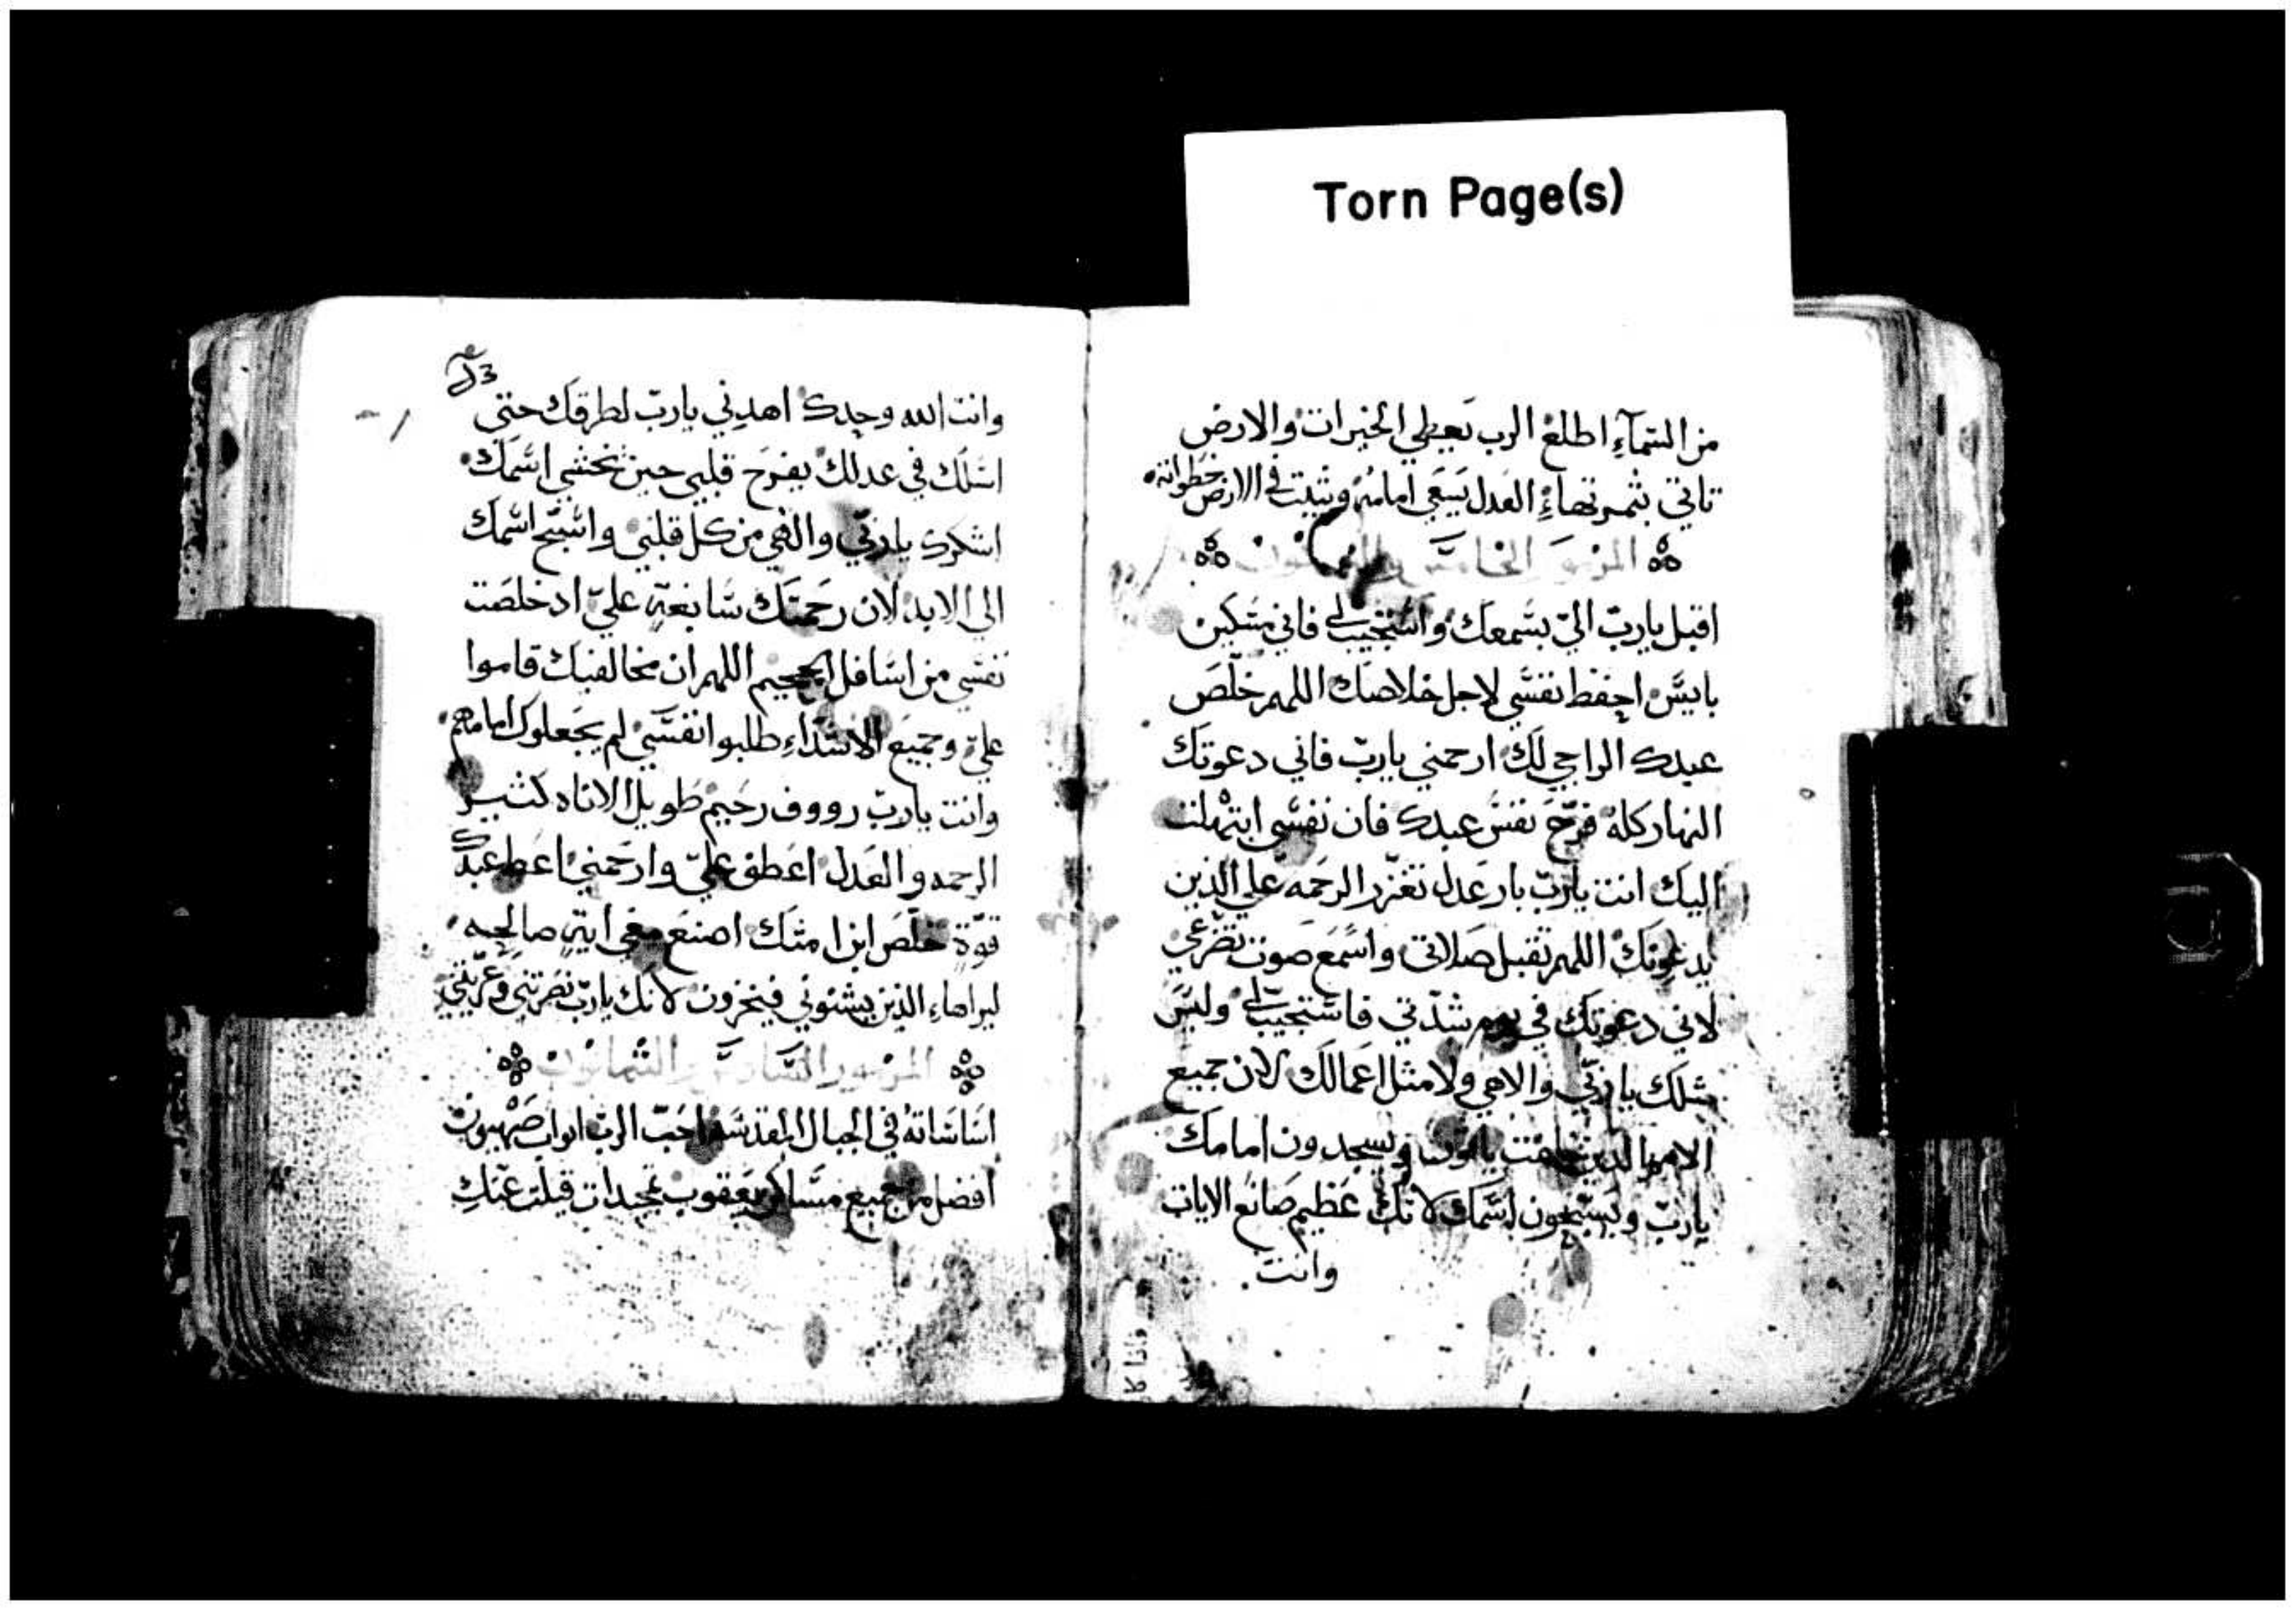 Torn Page(s)
من السّمآءِ اطلع الرب يعطي الخيرات والارض
تاتي بثمرتهاءِ العدل يسَعَي امامهُ ويثبت في الارض خطواته
المزمور الخامسَ والثمانون
اقبل يا ربّ اليّ بسَّمعك واسَّتجيب لي فاني مسَّكين
بايسَّ احفظ نفسَّي لاجل خلاصك اللهم خلّصَ
عبدك الراجي لَك ارحمني يا ربّ فاني دعوتك
النهار كلهُ فرّحَ نفسَ عبدك فان نفسَّي ابتهلت
اليك انت يا ربّ بار عَدل تغزر الرحمَه علي الذين
يدعونك اللهم تقبل صَلاتي واسَّمعَ صَوت تضرّعي
لاني دعوتك في يوم شدّتي فاسَّتجيب لي وليسَ
مثلك يا ربّي والاهي ولا مثل اعَمالك لان جميع
الامم الذين خلقت ياتون ويسجدون امامك
يا ربّ ويسَبّحون اسَّمك لانّك عَظيم صَانع الايات
وانت
وانت الله وحدك اهدِني يا ربّ لطرقك حتي
اسَّلك في عدلك يفرَح قلبي حين تخشي اسَّمك
اشكرك يا ربّي والهي من كل قلبي واسَّبّح اسَّمك
الي الابد لان رحَمتك سَّابغةٍ عليّ اد خلصَت
نفسَّي من اسَّافل الجحيم اللهم ان مخالفيك قاموا
عليّ وجميعَ الاشدّاءِ طلبوا نفسَّي لم يجَعلوك امامهم
وانت يا ربّ رووف رحَيم طويل الاناه كثير
الرحمه والعَدل اعَطف عليّ وارحَمني اعَط عبدك
قوّة خلّصَ ابن امتك اصنعَ معَي ايةٍ صالحه
ليراهاءِ الذين يشنوني فيخزون لانك يا ربّ نصَرتني وعَزّيتني
المزمور السَّادسَ والثمانون
اسَاسَاتهُ في الجبال المقدسَه احَبّ الربّ ابواب صَهْيون
افضل من جميع مسَّاكن يعَقوب تمجيدات قيلت عَنكِ